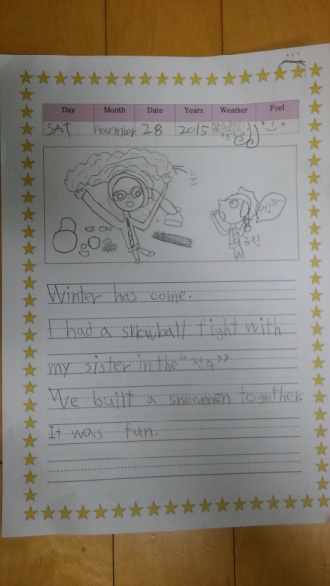 Day Month Date Years Weather Feel
SAT november 28 2015
Winter has come.
I had a snowball fight with
my sister in the "전주"
We built a snowmen together
It was fun.